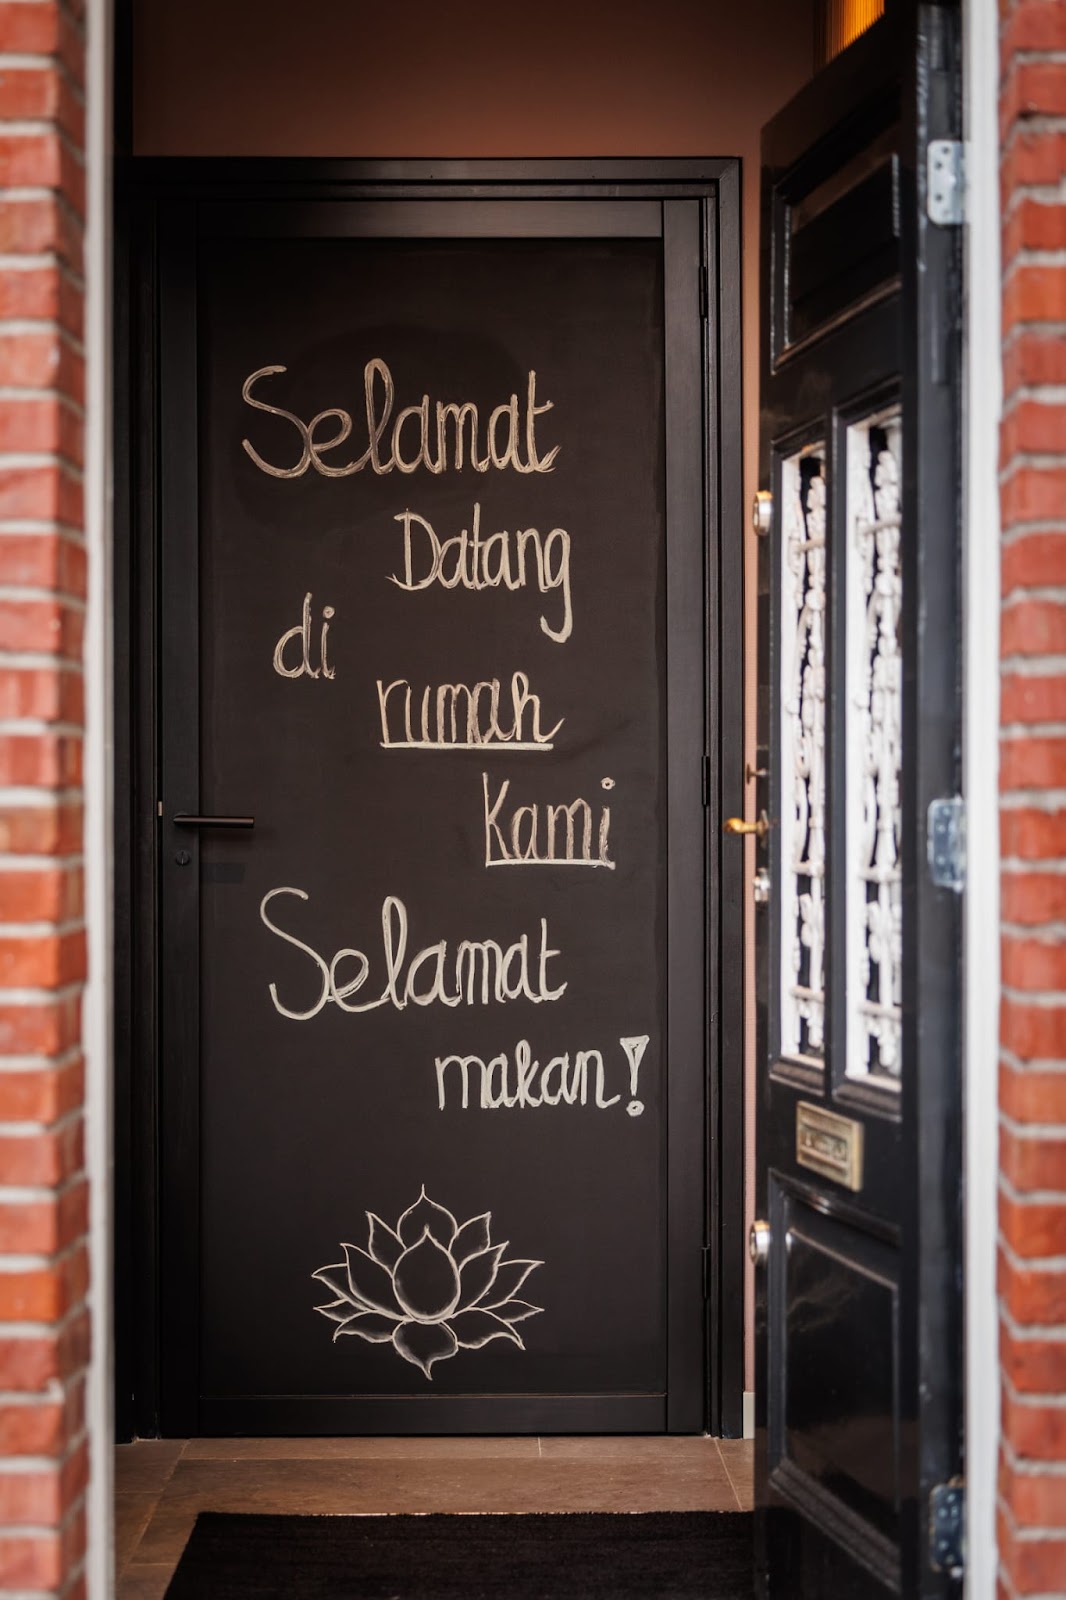 Selamat
Datang
di
rumah
Kami
Selamat
makan!